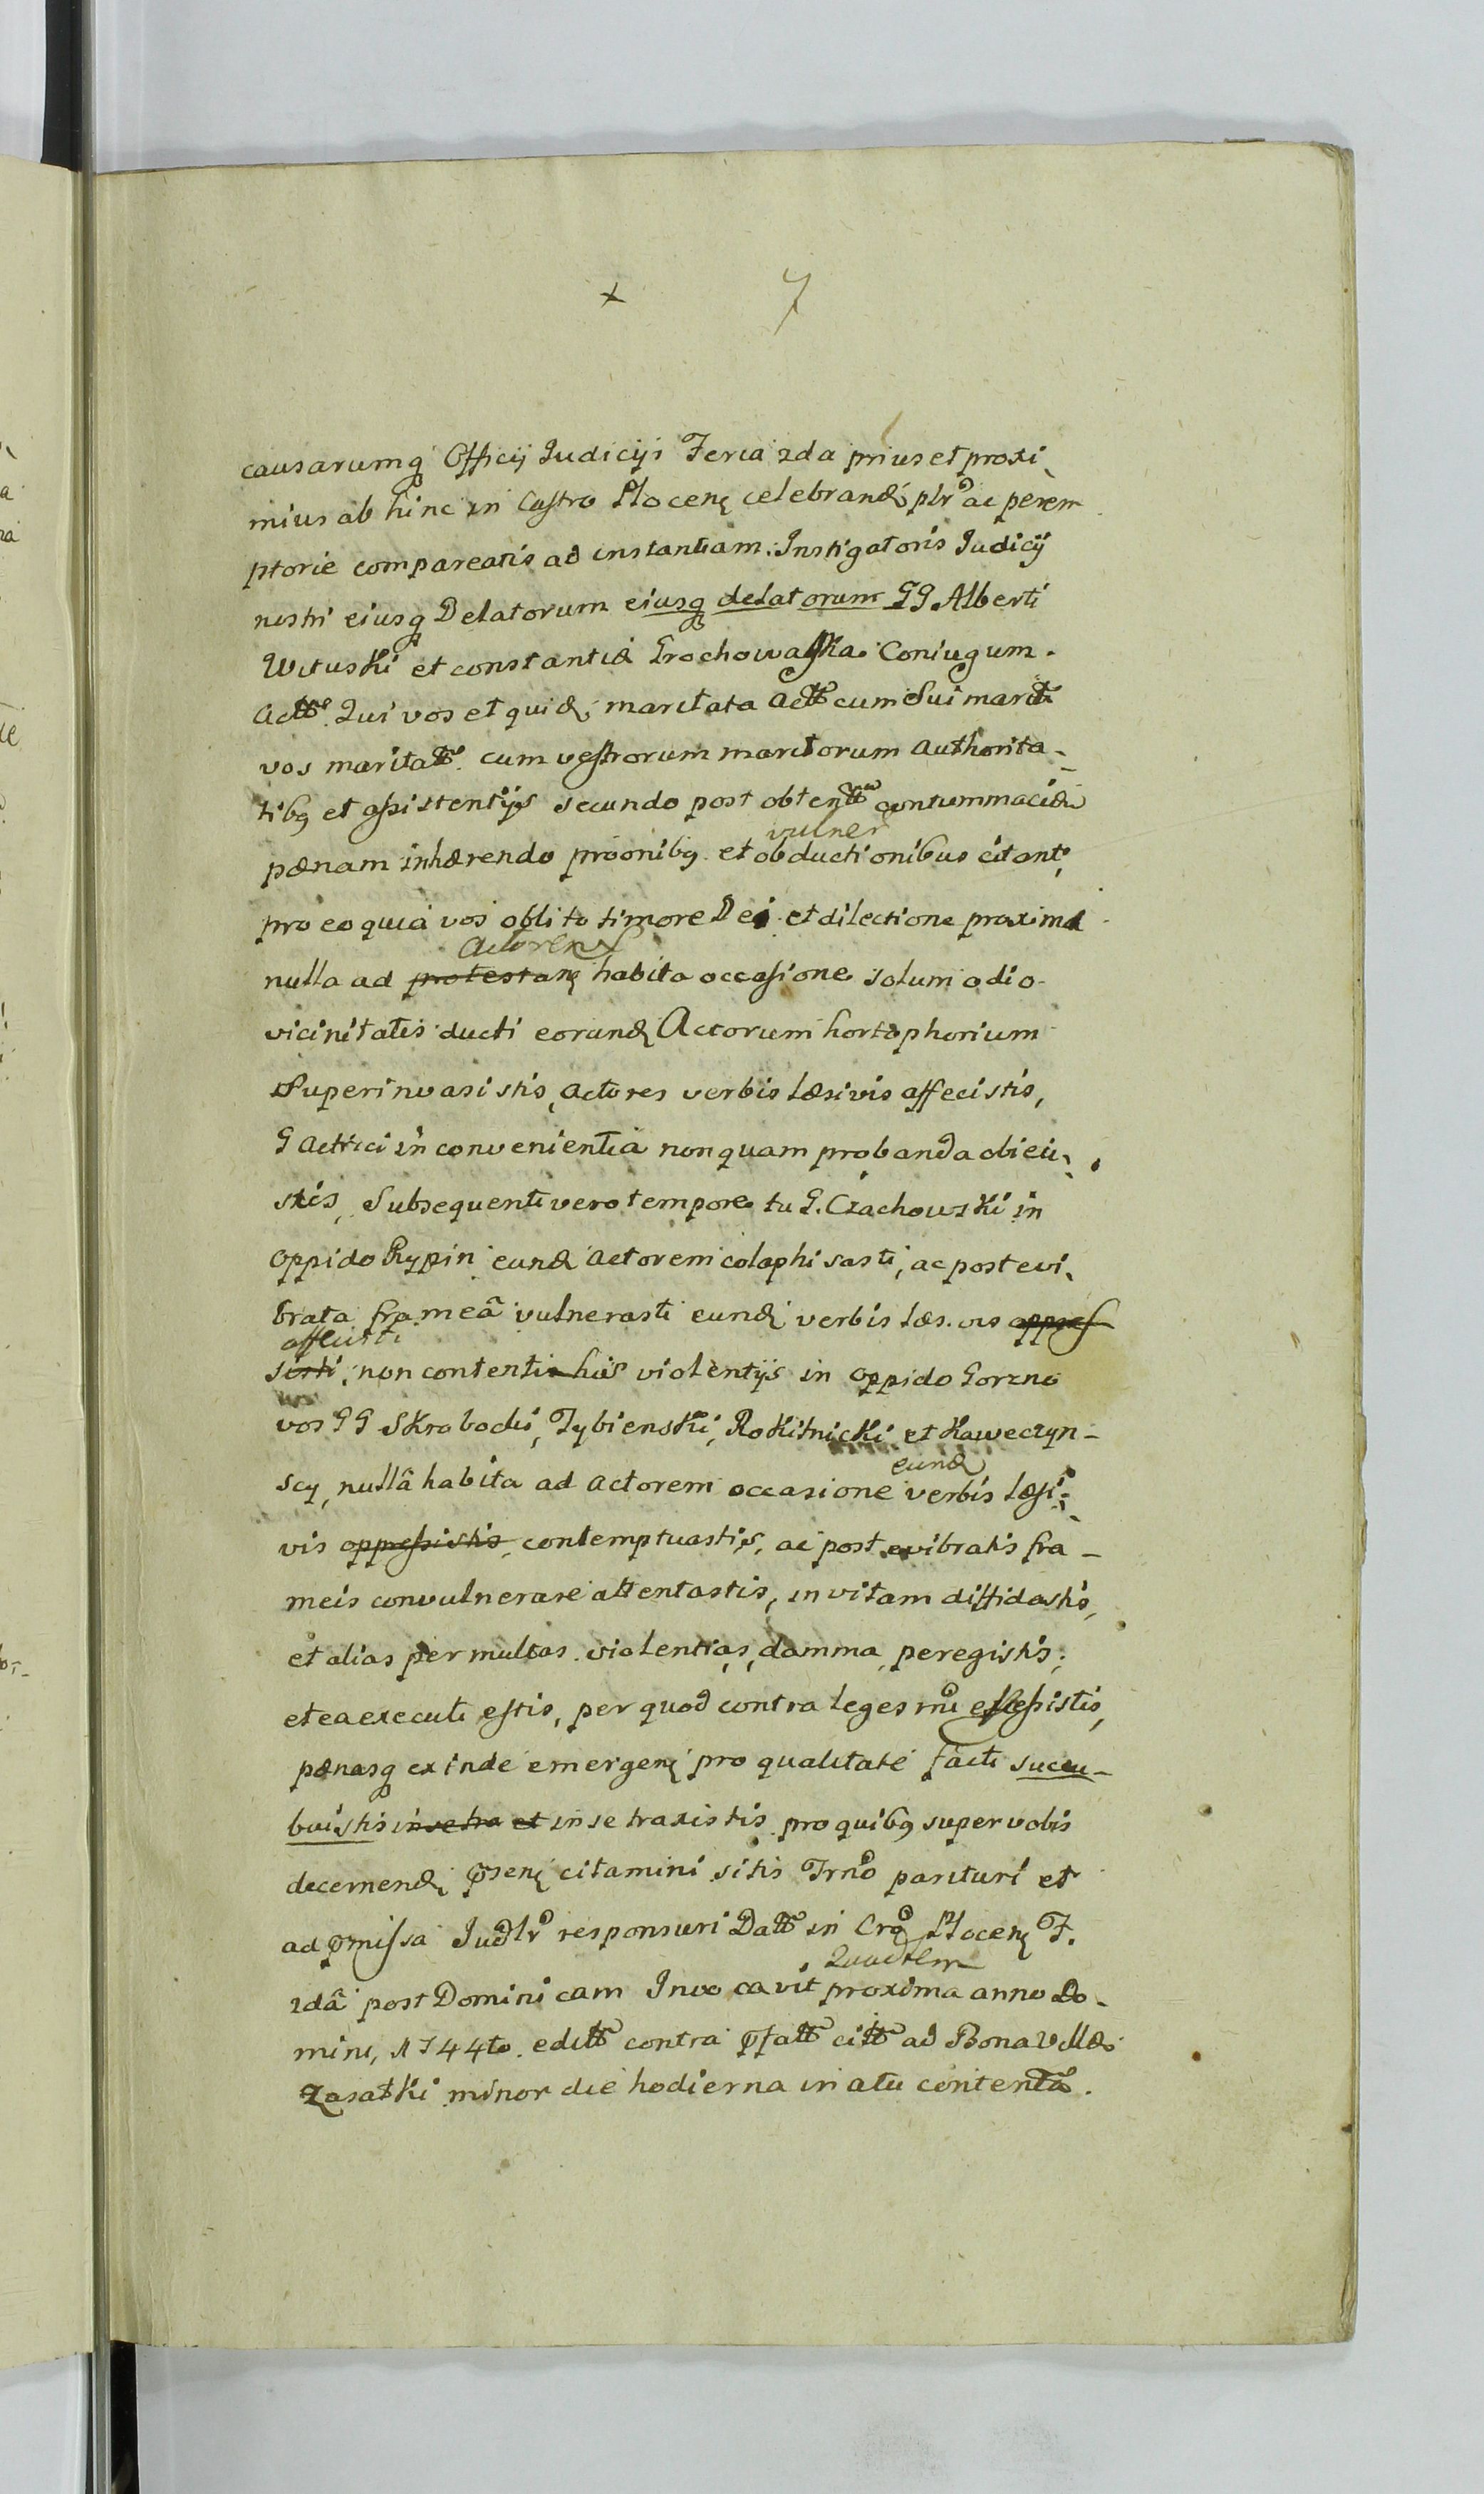 x 7
causarumq Officij Judicijs Feria 2da prius et proxi-
mius ab hinc in Castro Plocen celebrand plr ac perem
ptorie compareatis ad instantiam Instigatoris Judicij
nostri eiusq Delatorum eiusq delatorum GG Alberti
Wituski et constantiæ Grochowalska Coniugum.
Actt. Qui vos et quid maritata Actt cum sui marit
vos maritatt. cum vestrorum maritorum Authorita-
tibq et assistentijs secundo post obtentt contummaciæ
vulner
pænam inhærendo proonibq et obductionibus citant,
pro eo quia vos oblito timore Dei et dilectione proximi
Actorem
nulla ad protestan habita occasione solum odio
vicinitatis ducti eorund Actorum hortophorium
Superinvasistis, Actores verbis læsivis affecistis,
G Actrici inconvenientia nonquam probanda obieci-
stis, Subsequenti vero tempore tu G. Czachowski in
oppido Rypin eund Actorem colaphisasti, ac post evi-
brata frameâ vulnerasti eund verbis læs.vis oppres
affecisti
sisti, non contenti his violentijs in oppido Gorzno
vos GG Skrobocki, Tybienski, Rokitnicki et Kaweczyn-
eund
scy, nullâ habita ad Actorem occasione verbis læsi-
vis oppressistis, contemptuastis, ac post evibratis fra-
meis convulnerare attentastis, in vitam diffidastis,
et alias permultas violentias, damma peregistis,
et ea executi estis, per quod contra leges Rni excessistis,
pænasq exinde emergen pro qualitate facti succu-
buistis in se tra et in se traxistis pro quibq super vobis
decernend psen citamini sitis Trno parituri et
ad pmissa Judlr responsuri Datt in Cro Plocen F.
Quadlem
2dâ post Dominicam Invocavit proxima anno Do-
mini, 1744to. editt contra pfatt citt ad Bona Villæ
Zasatki minor die hodierna in atu contentt.